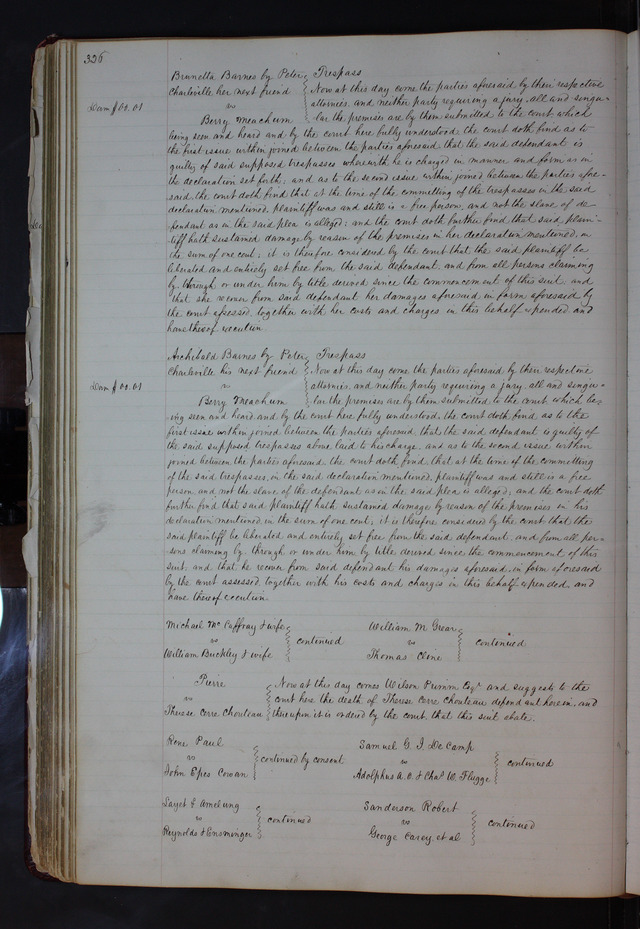 326
Brunetta Barnes by Peter Trespass
Charleville her next friend Now at this day come the parties aforesaid by their respective
Dam $00.01 vs attornies, and neither party requiring a jury, all and singu-
Berry Meachum lar the premises are by them submitted to the court which
being seen and heard and by the court here fully understood. the court doth find as to
the first issue within joined between the parties aforesaid, that the said defendant is
guilty of said supposed trespasses whereof he is charged in manner and form as in
the declaration set forth; and as to the second issue within joined between the parties afore-
said, the court doth find that at the time of the committing of the trespasses in the said
declaration mentioned, plaintiff was and still is a free person, and not the slave of de-
fendant as in the said plea is alleged; and the court doth further find that said plain-
tiff hath sustained damage by reason of the premises in her declaration mentioned, in
the sum of one cent; it is therefore considered by the court that the said plaintiff be
liberated and entirely set free from the said defendant, and from all persons claiming
by, through or under him by title derived since the commencement of this suit; and
that she recover from said defendant her damages aforesaid, in form aforesaid by
the court assessed, together with her costs and charges in this behalf expended and
have thereof execution
Archibald Barnes by Peter Trespass
Charleville his next friend Now at this day come the parties aforesaid by their respective
Dam $00.01 vs attornies, and neither party requiring a jury, all and singu-
Berry Meachum lar the premises are by them submitted to the court which be-
ing seen and heard, and by the court here fully understood, the court doth find, as to the
first issue within joined between the parties aforesaid, that the said defendant is guilty of
the said supposed trespasses above laid to his charge, and as to the second issue within
joined between the parties aforesaid the court doth find, that at the time of the committing
of the said trespasses, in the said declaration mentioned, plaintiff was and still is a free
person and not the slave of the defendant as in the said plea is alleged; and the court doth
further find that said plaintiff hath sustained damage by reason of the premises in his
declaration mentioned in the sum of one cent; it is therefore considered by the court that the
said plaintiff be liberated and entirely set free from the said defendant, and from all per-
sons claiming by, through or under him by title derived since the commencement of this
suit; and that he recover from said defendant his damages aforesaid, in form aforesaid
by the court assessed, together with his costs and charges in this behalf expended, and
have thereof execution.
Michael McCaffray & wife
vs continued
William Buckley & wife
William M Grear
vs continued
Thomas Cline
Pierre Now at this day comes Wilson Primm Esqr. and suggests to the
vs court here the death of Therese Cerre Chouteau defendant herein, and
Therese Cerre Chouteau thereupon it is ordered by the court, that this suit abate.
Rene Paul
vs continued by consent
John Epes Cowan
Samuel G. J. DeCamp
vs continued
Adolphus A. O. & Chas W. Flugge
Sayet & Amelung
vs continued
Reynolds & Ensminger
Sanderson Robert
vs continued
George Carey et al